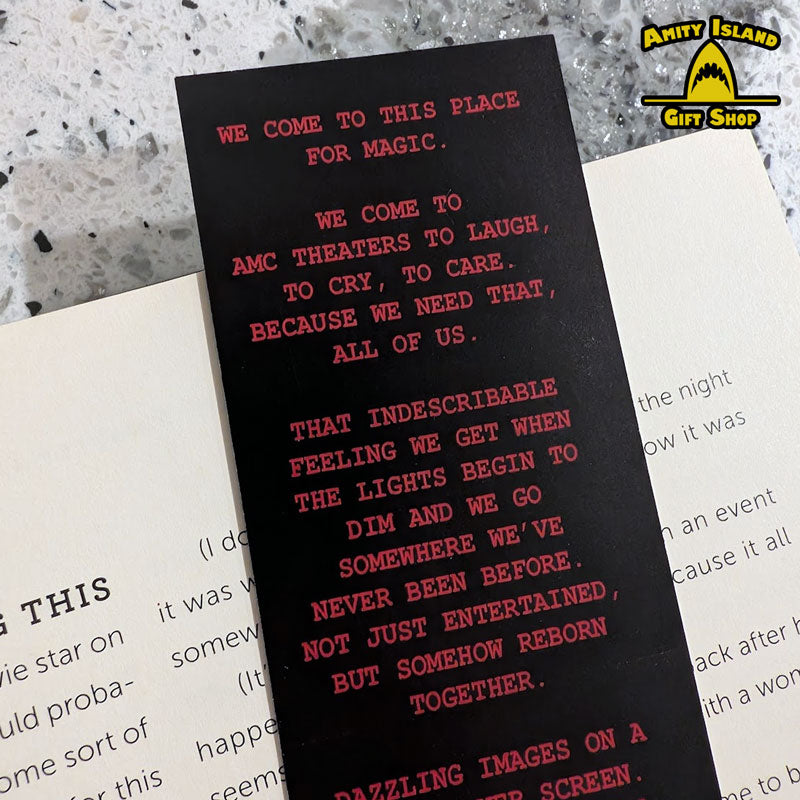 AMITY ISLAND
GIFT SHOP
WE COME TO THIS PLACE
FOR MAGIC.
WE COME TO
AMC THEATERS TO LAUGH,
TO CRY, TO CARE.
BECAUSE WE NEED THAT,
ALL OF US.
THAT INDESCRIBABLE
FEELING WE GET WHEN
THE LIGHTS BEGIN TO
DIM AND WE GO
SOMEWHERE WE'VE
NEVER BEEN BEFORE.
NOT JUST ENTERTAINED,
BUT SOMEHOW REBORN
TOGETHER.
DAZZLING IMAGES ON A
SCREEN.
THIS
star on
proba-
sort of
for this
(I
it was
(It'
seems
the night
it was
an event
it all
after
with a
to